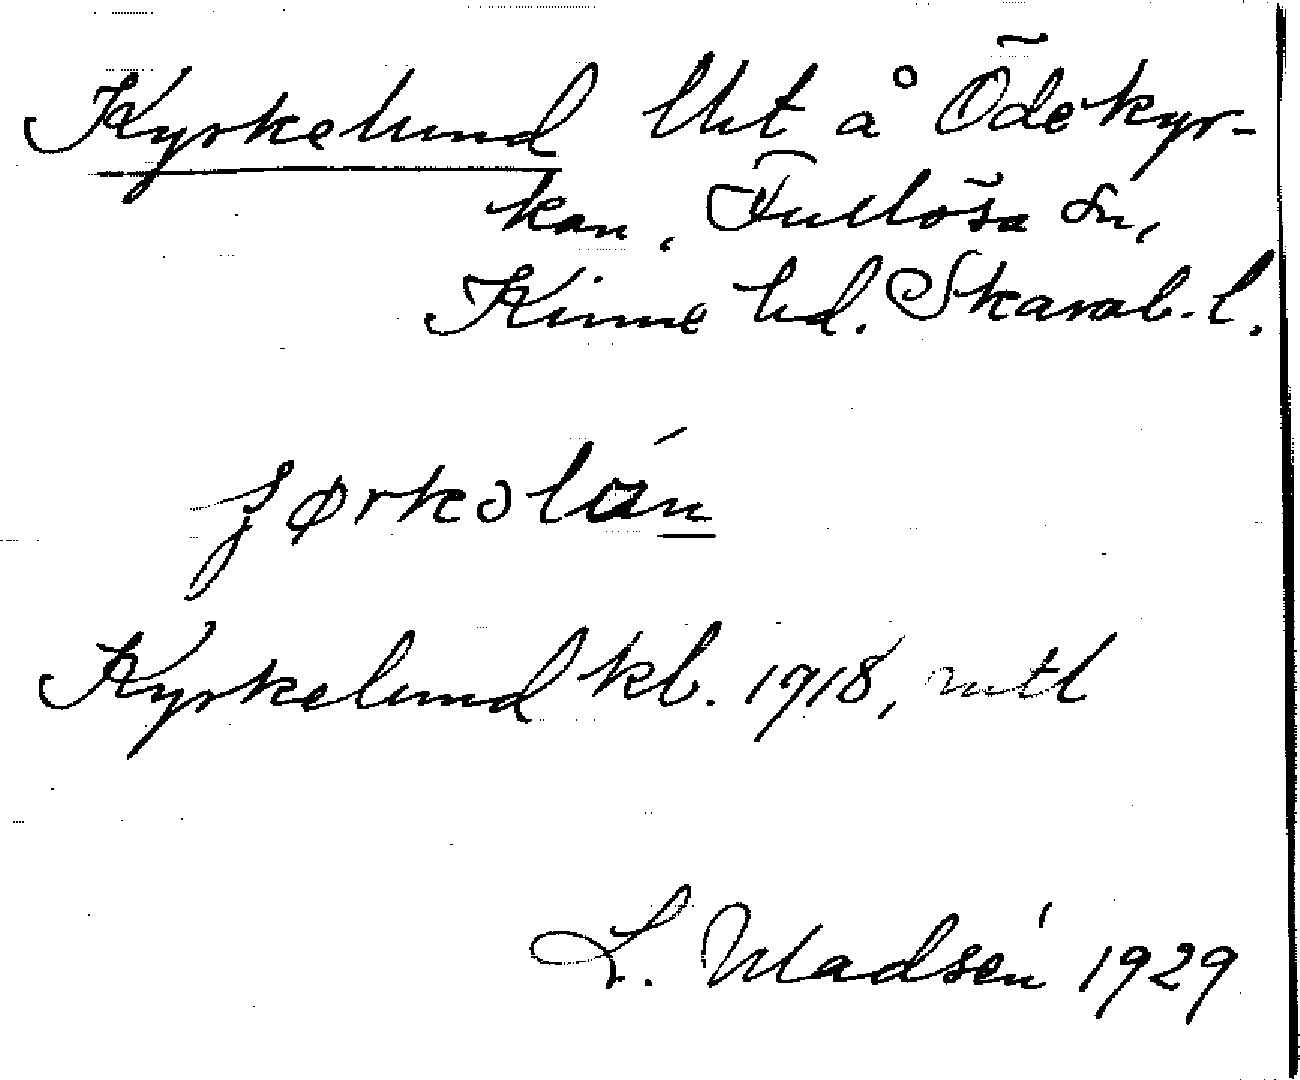 Kyrkelund Uht å Ödekyr-
kan, Fullösa Sn,
Kinne hd. Skarab. l.
ʃørkəlún
Kyrkelund kb. 1918, mtl
L. Madsén 1929